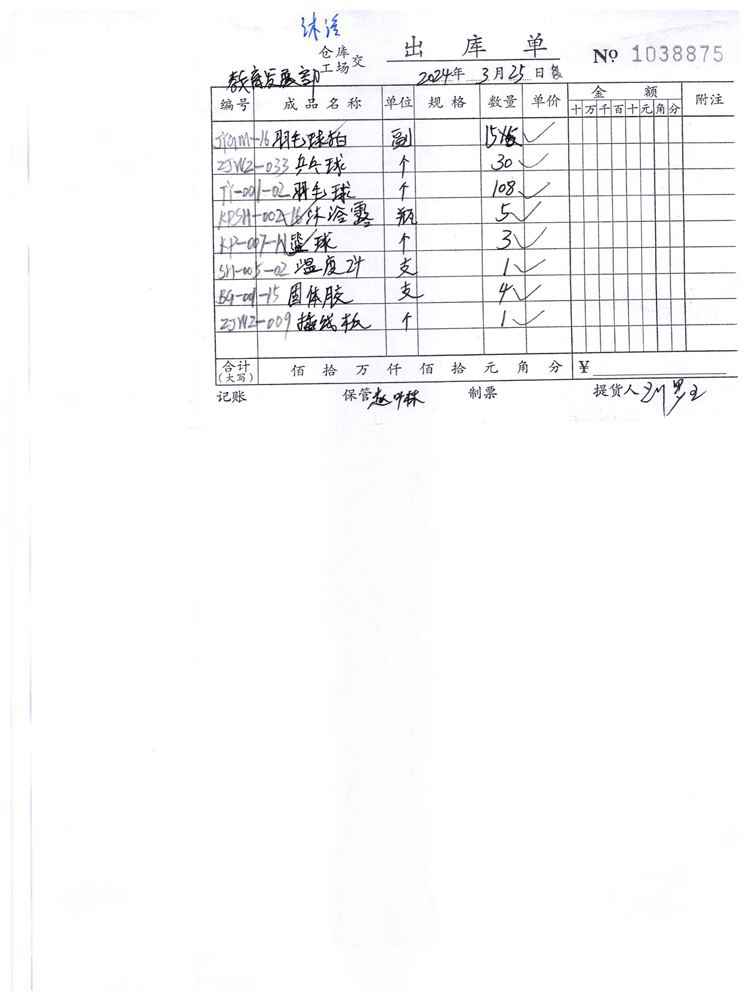 沐浴
出库单
仓库
工场 交
№ 1038875
教育发展部
2024年 3月25日
编号 成品名称 单位 规格 数量 单价 金额 附注
十万千百十元角分
-16 羽毛球拍 副 15
ZJWZ-033 乒乓球 个 30
TY-001-02 羽毛球 个 108
KPSH-002-16 沐浴露 瓶 5
KP-007- 篮球 个 3
SH-005-02 温度计 支 1
BG-001-15 固体胶 支 4
ZJWZ-009 插线板 个 1
合计
(大写) 佰拾万仟佰拾元角分 ¥
记账 保管 赵 林 制票 提货人